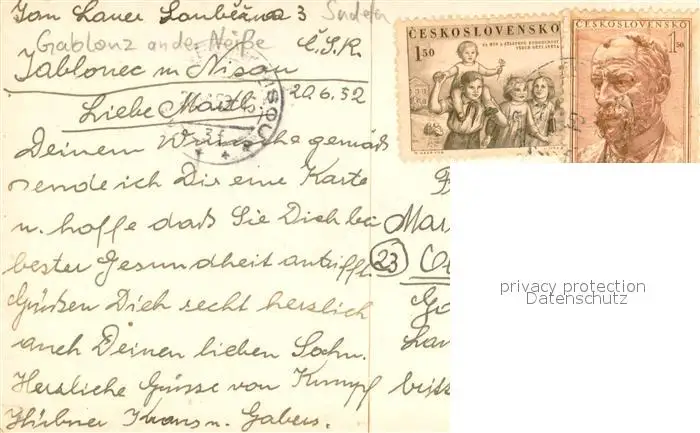 Jan Lauer 3 Sudeten
Gablonz an der Neiße Č.S.R.
Jablonec n Nisou
Liebe Martl 20.6.52
Deinem Wunsche gemäß
sende ich Dir eine Karte
u. hoffe daß Sie Dich bei
bester Gesundheit antrifft.
Grüßen Dich recht herzlich
auch Deinen lieben Sohn.
Herzliche Grüsse von Kumpf
Hübner Kraus u. Gabers.
ČESKOSLOVENSKO
1.50
ČESKOSLOVENSKO
1.50
Mar
23
Lan
privacy protection
Datenschutz